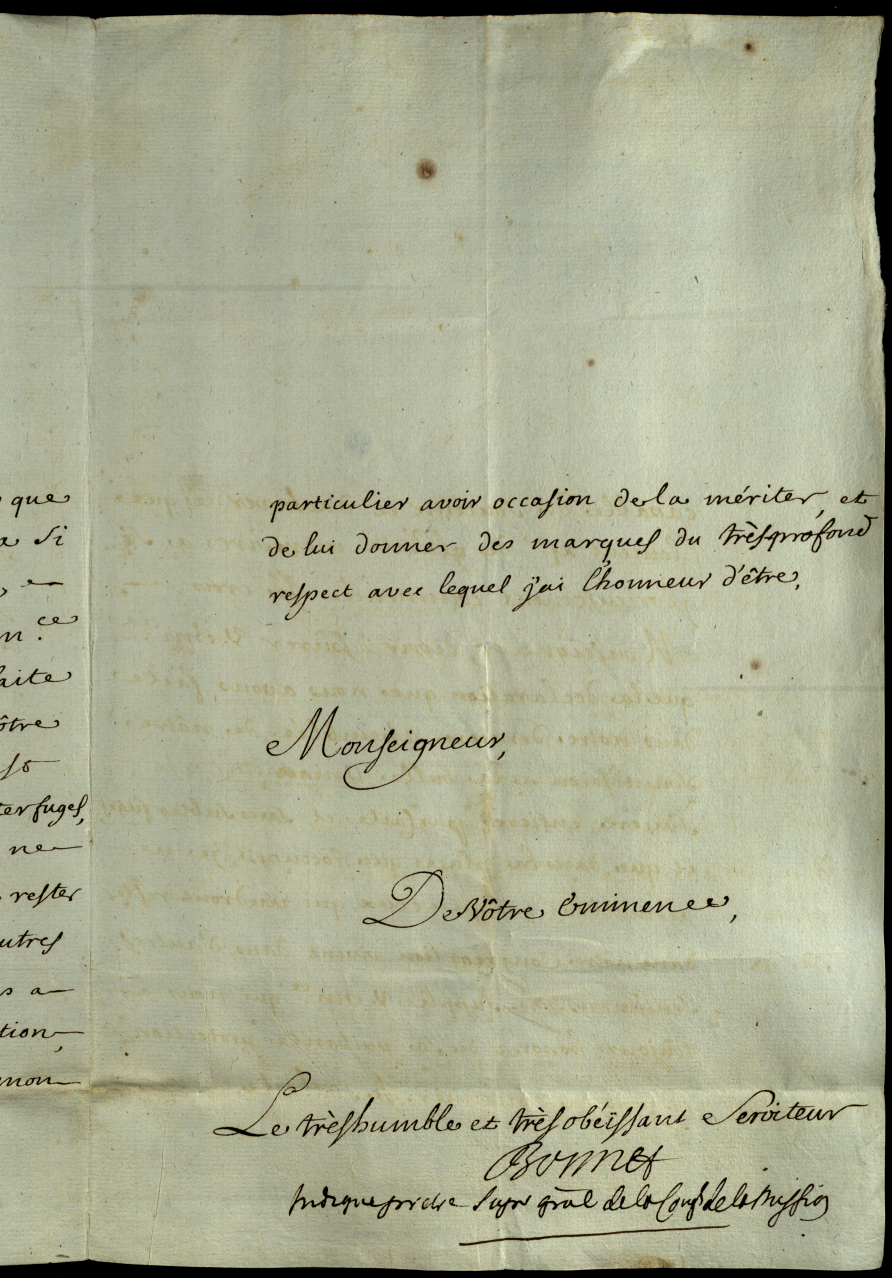 que
a si
n.ce
aite
ôtre
terfuges,
ne
rester
utres
s a
tion,
mon
particulier avoir occasion de la mériter, et
de lui donner des marques du très profond
respect avec lequel j'ai l'honneur d'être,
Monseigneur,
De Vôtre Eminence,
Le très humble et très obéissant Serviteur
Bonnet
Indigne prêtre Supr gñal de la Cong de la Mission